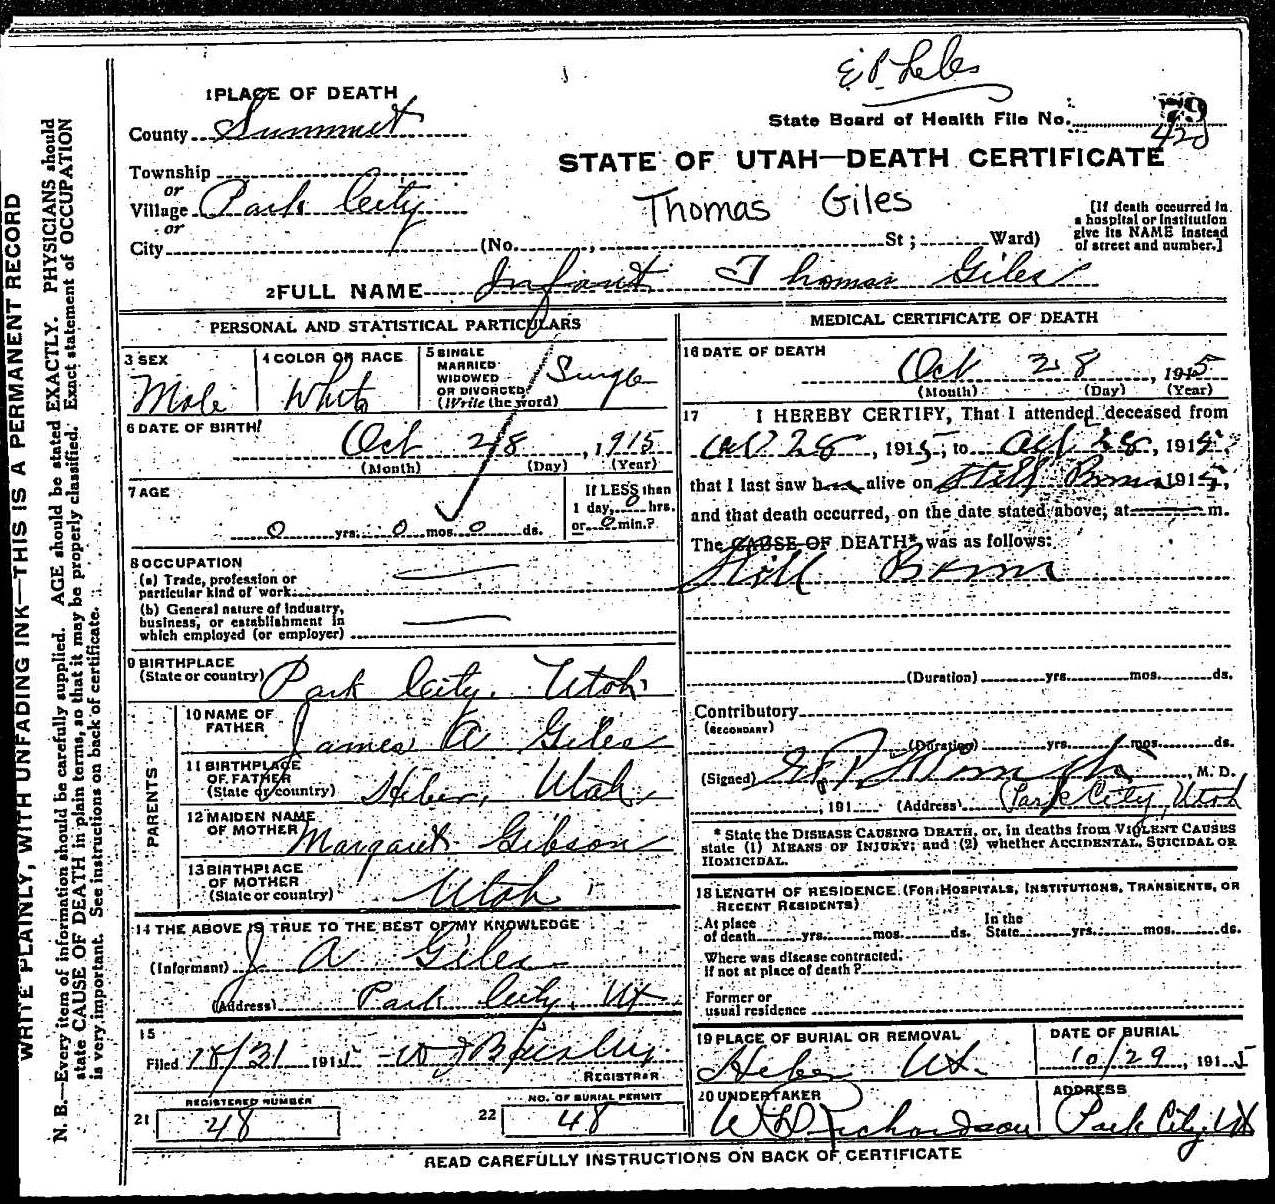 1 PLACE OF DEATH
County Summit
State Board of Health File No. 79
STATE OF UTAH—DEATH CERTIFICATE
Township
or
Village Park City
or
City (No. , St ; Ward)
Thomas Giles
[If death occurred in a hospital or institution give its NAME instead of street and number.]
2 FULL NAME Infant Thomas Giles
PERSONAL AND STATISTICAL PARTICULARS
3 SEX
Male
4 COLOR OR RACE
White
5 SINGLE
MARRIED
WIDOWED
OR DIVORCED
(Write the word)
Single
6 DATE OF BIRTH
Oct 28, 1915
(Month) (Day) (Year)
7 AGE
0 yrs. 0 mos. 0 ds.
If LESS than
1 day, 0 hrs.
or 0 min.?
8 OCCUPATION
(a) Trade, profession or
particular kind of work
(b) General nature of industry,
business, or establishment in
which employed (or employer)
9 BIRTHPLACE
(State or country) Park City, Utah
PARENTS
10 NAME OF
FATHER James A Giles
11 BIRTHPLACE
OF FATHER
(State or country) Heber, Utah
12 MAIDEN NAME
OF MOTHER Margaret Gibson
13 BIRTHPLACE
OF MOTHER
(State or country) Utah
14 THE ABOVE IS TRUE TO THE BEST OF MY KNOWLEDGE
(Informant) J A Giles
(Address) Park City, Ut
15
Filed 10/31 1915
REGISTRAR
REGISTERED NUMBER
21 48
NO. OF BURIAL PERMIT
22 48
MEDICAL CERTIFICATE OF DEATH
16 DATE OF DEATH
Oct 28, 1915
(Month) (Day) (Year)
17 I HEREBY CERTIFY, That I attended deceased from
Oct 28, 1915, to Oct 28, 1915,
that I last saw h alive on Still Born 1915,
and that death occurred, on the date stated above, at m.
The CAUSE OF DEATH* was as follows:
Still Born
(Duration) yrs. mos. ds.
Contributory
(SECONDARY)
(Duration) yrs. mos. ds.
(Signed) , M. D.
, 191 (Address) Park City, Utah
* State the DISEASE CAUSING DEATH, or, in deaths from VIOLENT CAUSES
state (1) MEANS OF INJURY; and (2) whether ACCIDENTAL, SUICIDAL OR
HOMICIDAL.
18 LENGTH OF RESIDENCE (FOR HOSPITALS, INSTITUTIONS, TRANSIENTS, OR
RECENT RESIDENTS)
At place
of death yrs. mos. ds. In the
State yrs. mos. ds.
Where was disease contracted,
if not at place of death?
Former or
usual residence
19 PLACE OF BURIAL OR REMOVAL
Heber Ut.
DATE OF BURIAL
10/29, 1915
20 UNDERTAKER
W D Richardson
ADDRESS
Park City, Ut
READ CAREFULLY INSTRUCTIONS ON BACK OF CERTIFICATE
WRITE PLAINLY, WITH UNFADING INK—THIS IS A PERMANENT RECORD
N. B.—Every item of information should be carefully supplied. AGE should be stated EXACTLY. PHYSICIANS should
state CAUSE OF DEATH in plain terms, so that it may be properly classified. Exact statement of OCCUPATION
is very important. See instructions on back of certificate.